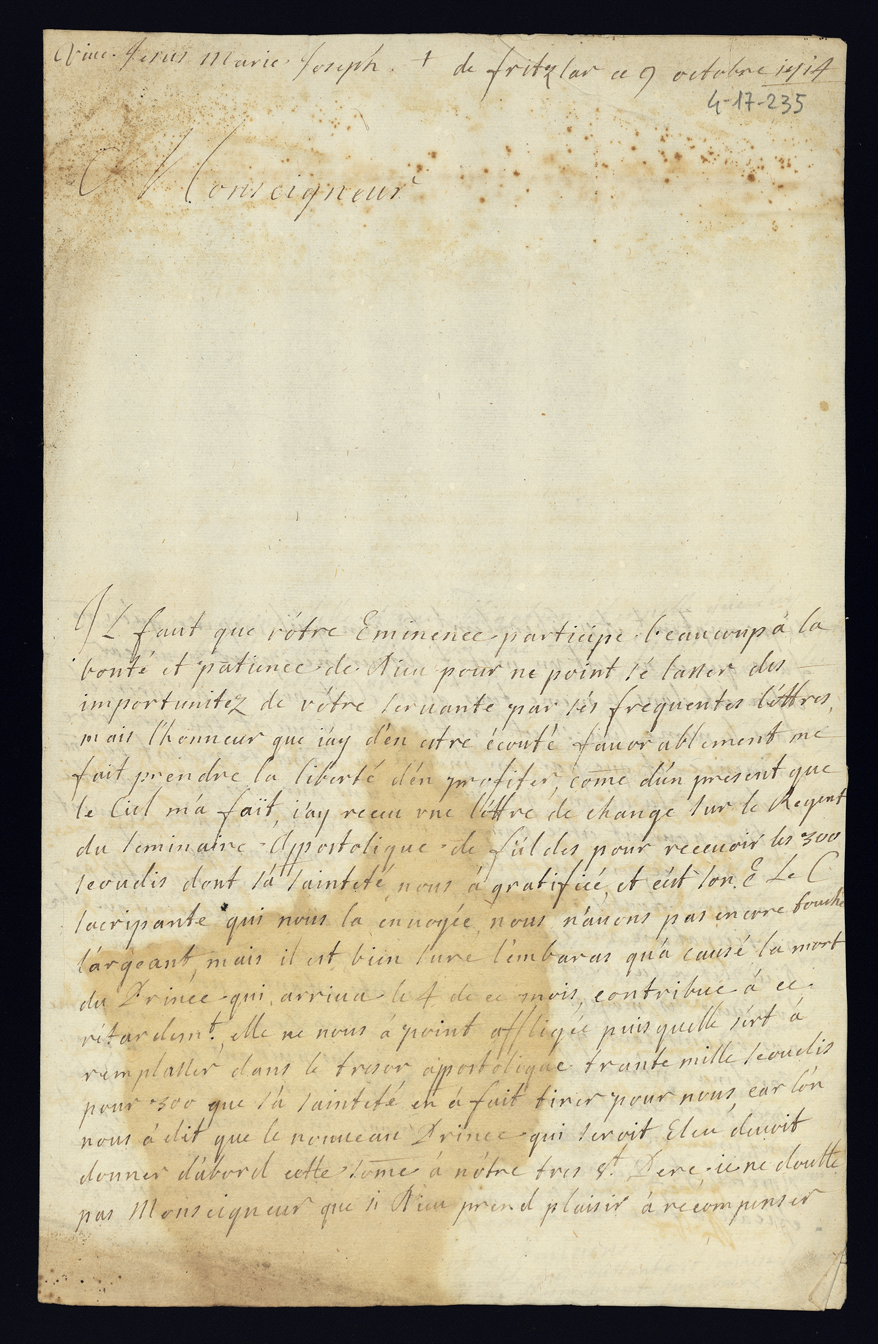 Vive Jesus Marie Joseph. + de fritzlar ce 9 octobre 1714
4-17-235
Monseigneur
Il faut que vôtre Eminence participe beaucoup à la
bonté et patience de Dieu pour ne point se lasser des
importunitéz de vôtre servante par sés frequentes léttres,
mais l'honneur que j'ay d'en estre écouté favorablement me
fait prendre la liberté d'én profiter, come d'ún present que
le Ciel m'a faït, j'ay receu vne léttre de change sur le Regent
du seminaire Appostolique de fúldes pour recevoir les 300
scoudis dont sá sainteté nous á gratifiée, et c'ést son. E Le C
sacripante qui nous la énvoyée, nous n'avons pas encore touché
l'árgeant, mais il est bien sure l'émbaras qu'á causé la mort
du Prince qui arriva le 4 de ce mois, contribue á ce
rétardemt. elle ne nous á point affligée puis quelle sért á
remplasser dans le tresor appostolique trante mille scoudis
pour 300 que sá sainteté en á fait tirer pour nous, car l'ón
nous á dit que le nouveau Prince qui seroit Eleu, devoit
donner d'abord cette some á nôtre tres St. Pere. ie ne doutte
pas Monseigneur que si Dieu prend plaisir á recompenser